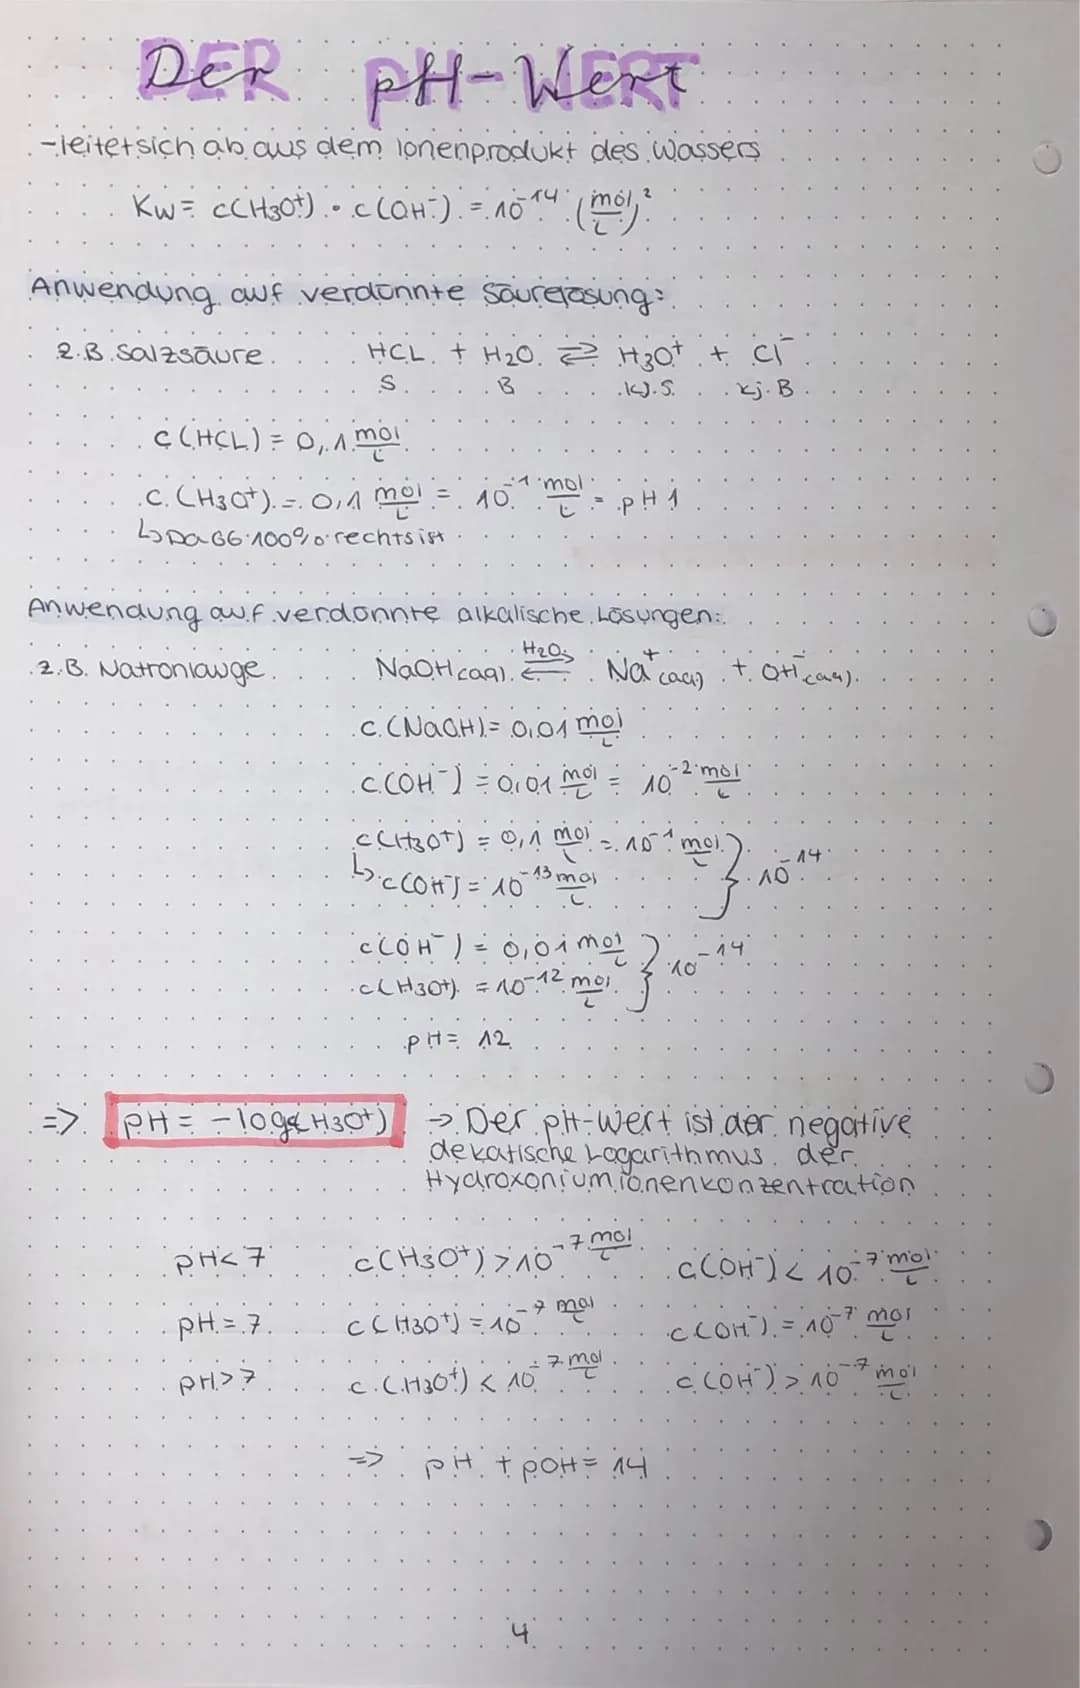 DER pH-WERT
-leitet sich ab aus dem Ionenprodukt des Wassers
Kw = c(H3O+) · c(OH-) = 10^-14 (mol/L)²
Anwendung auf verdünnte Säurelösung:
z.B. Salzsäure HCL + H2O ⇄ H3O+ + Cl-
S B kj.S. kj.B
c(HCL) = 0,1 mol/L
c(H3O+) = 0,1 mol/L = 10^-1 mol/L = pH 1
↳ Da GG 100% rechts ist
Anwendung auf verdünnte alkalische Lösungen:
z.B. Natronlauge NaOH(aq) ⇄ H2O Na+(aq) + OH-(aq)
c(NaOH) = 0,01 mol/L
c(OH-) = 0,01 mol/L = 10^-2 mol/L
c(H3O+) = 0,1 mol/L = 10^-1 mol/L } 10^-14
↳ c(OH-) = 10^-13 mol/L
c(OH-) = 0,01 mol/L } 10^-14
c(H3O+) = 10^-12 mol/L
pH = 12
=> pH = -log c(H3O+) → Der pH-Wert ist der negative
dekatische Logarithmus der
Hydroxoniumionenkonzentration
pH < 7 c(H3O+) > 10^-7 mol/L c(OH-) < 10^-7 mol/L
pH = 7 c(H3O+) = 10^-7 mol/L c(OH-) = 10^-7 mol/L
pH > 7 c(H3O+) < 10^-7 mol/L c(OH-) > 10^-7 mol/L
=> pH + pOH = 14
4